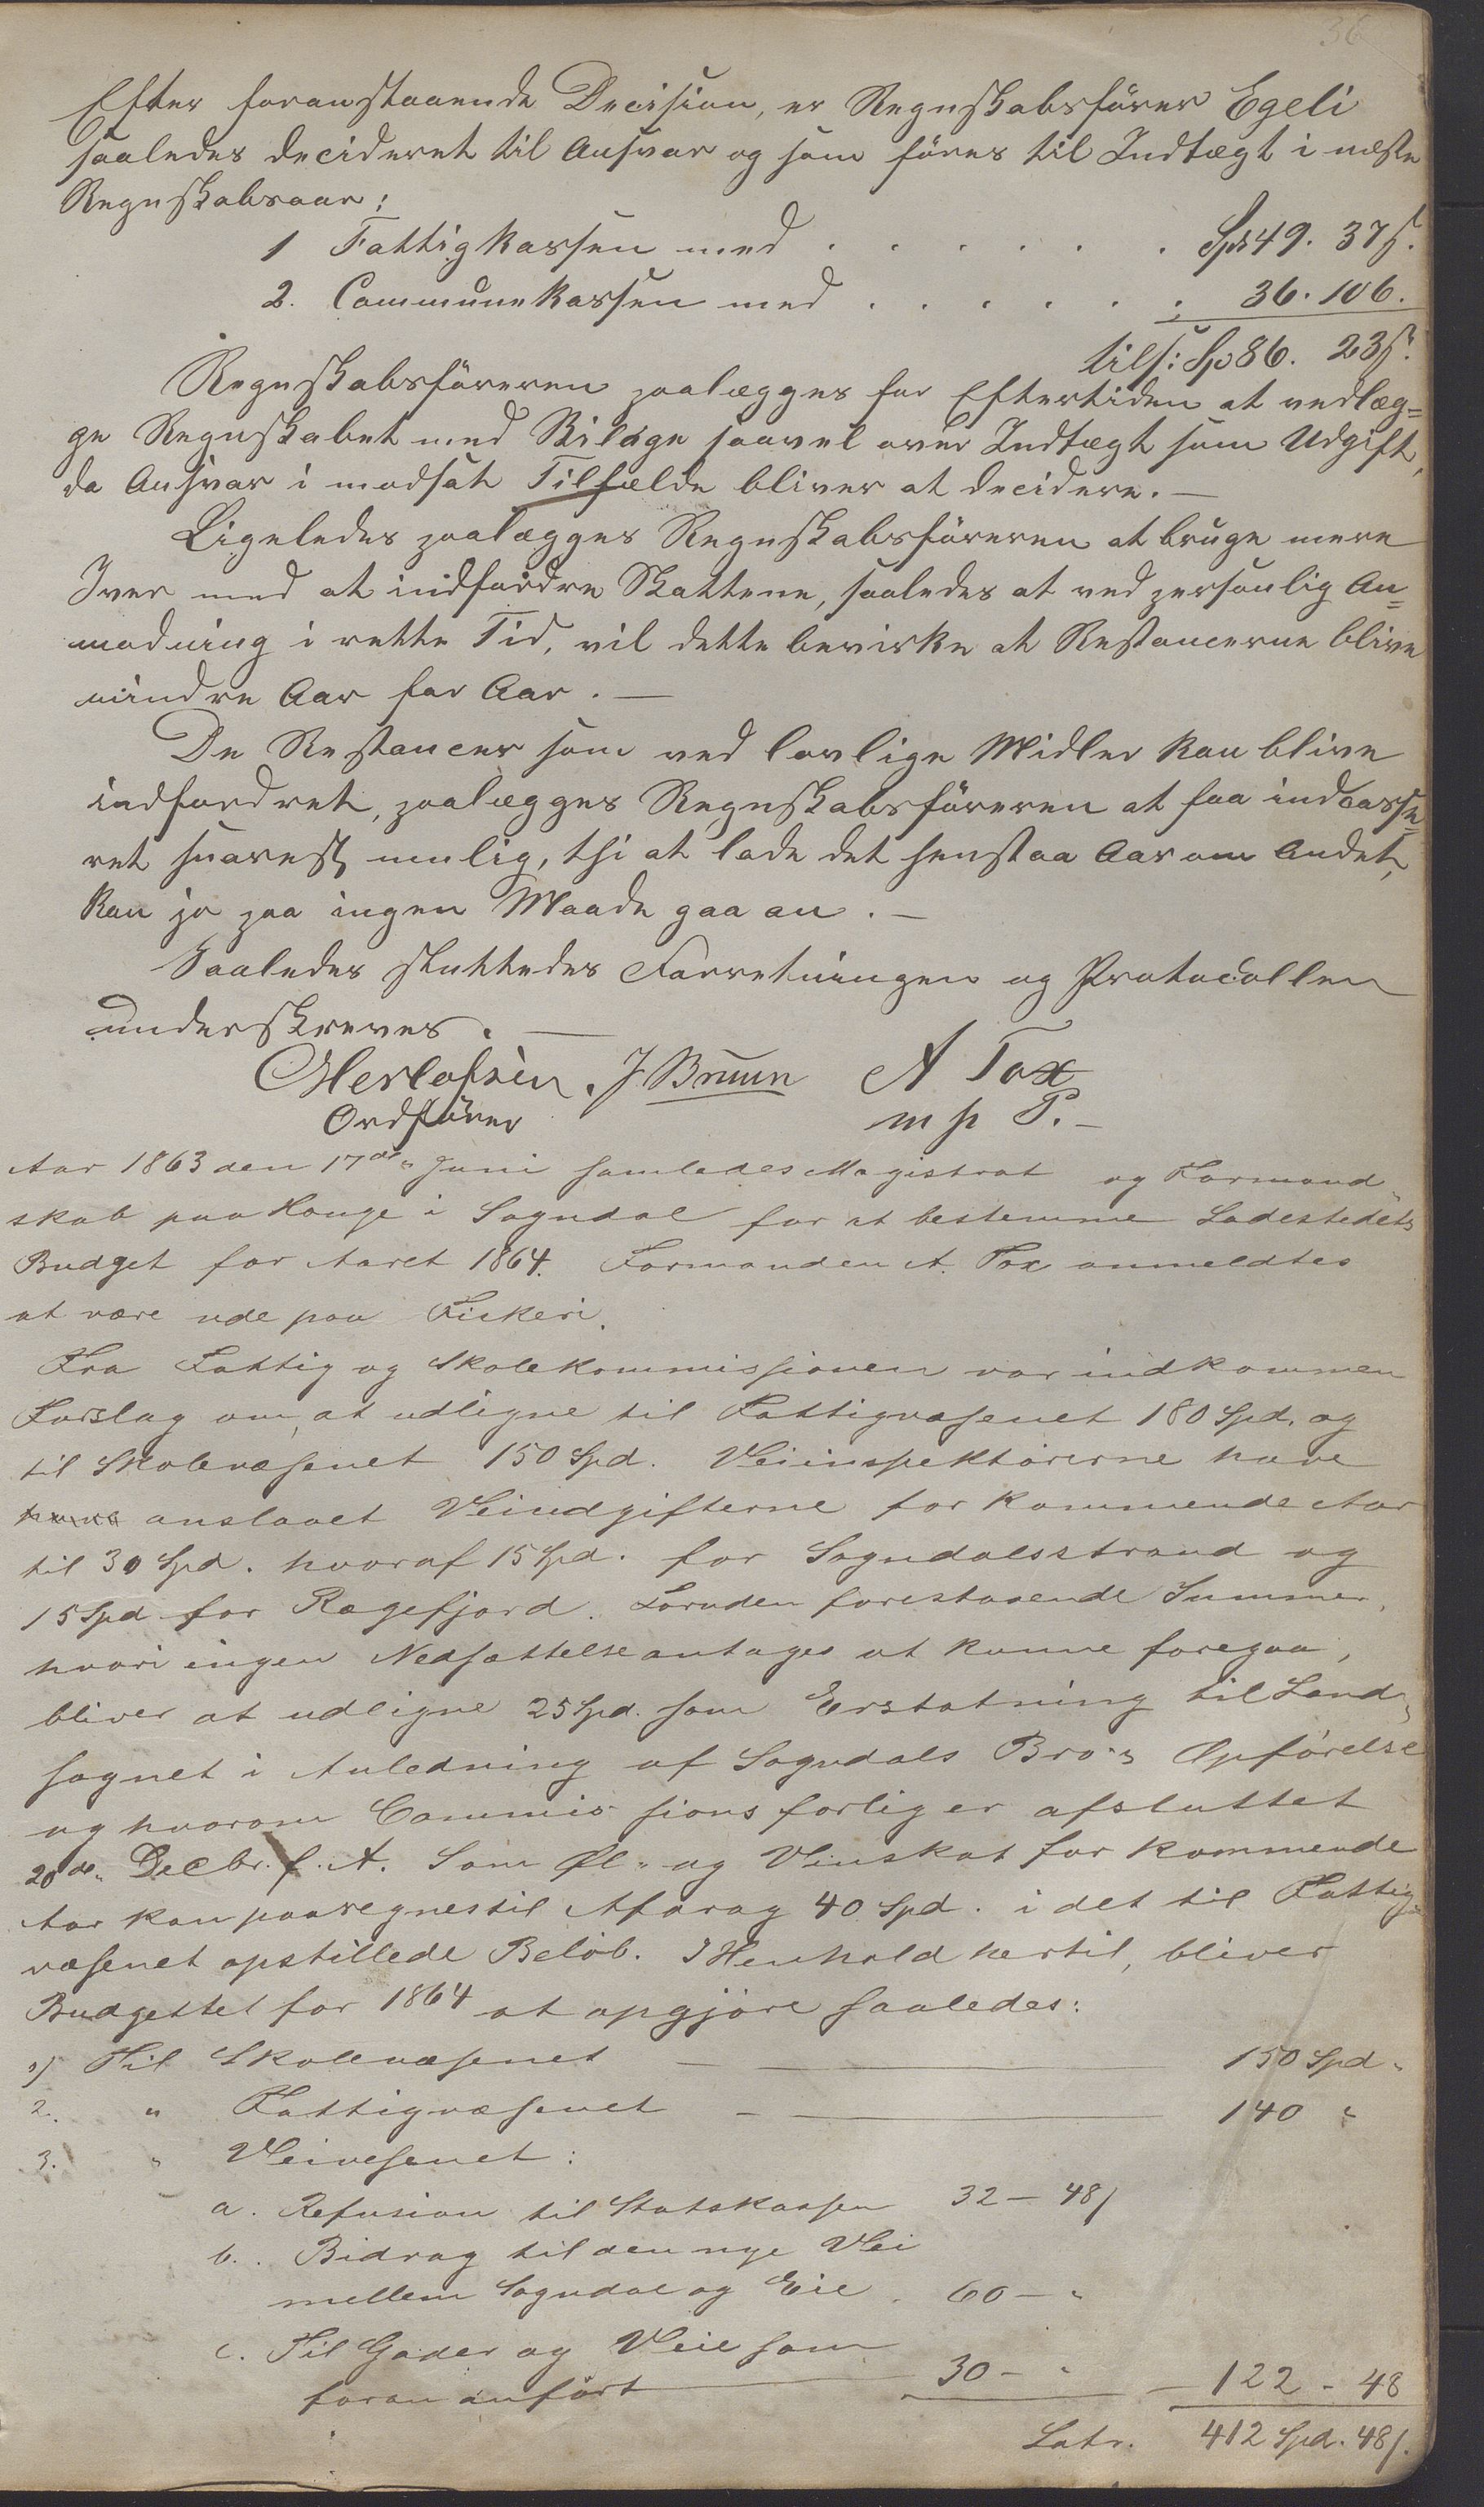 36
Efter foranstaaende Decision, er Regnskabsfører Egeli
saaledes decideret til Ansvar og som føres til Indtægt i næste
Regnskabsaar:
1 Fattigkassen med . . . . . . Spd 49. 37 s.
2. Communekassen med . . . . . . 36. 106.
tils: Sp 86. 23 s.
Regnskabsføreren paalægges for Eftertiden at vedlæg=
ge Regnskabet med Bilage saavel over Indtægt som Udgift,
da Ansvar i modsat Tilfælde bliver at decidere. —
Ligeledes paalægges Regnskabsføreren at bruge mere
Iver med at indfordre Skattene, saaledes at ved personlig An=
modning i rette Tid, vil dette bevirke at Restancerne blive
mindre Aar for Aar. —
De Restancer som ved lovlige Midler kan blive
indfordret, paalægges Regnskabsføreren at faa indcasse=
ret snarest mulig, thi at lade det henstaa Aar om Andet,
kan jo paa ingen Maade gaa an. —
Saaledes sluttedes Forretningen og Protocollen
underskreves. —
Herlofsen. J Bruun A Tox
Ordfører m p P. —
Aar 1863 den 17de Juni samledes Magistrat og Formand
skab paa Hauge i Sogndal for at bestemme Ladestedets
Budget for Aaret 1864. Formanden A. Tox anmeldtes
at være ude paa Fiskeri.
Fra Fattig og Skolekommissionen var indkommen
Forslag om, at udligne til Fattigvæsenet 180 Spd. og
til Skolevæsenet 150 Spd. Veiinspektørerne have
have anslaaet Veiudgifterne for kommende Aar
til 30 Spd. hvoraf 15 Spd. for Sogndalsstrand og
15 Spd for Rægefjord. Foruden forestaaende Summer,
hvori ingen Nedsættelse antages at kunne foregaa,
bliver at udligne 25 Spd. som Erstatning til Land„
sognet i Anledning af Sogndals Bro's Opførelse
og hvorom Commissionsforlig er afsluttet
20de Decbr. f. A. Som Øl„ og Vinskat for kommende
Aar kan paaregnes til Afdrag 40 Spd. i det til Fattig„
væsenet opstillede Beløb. I Henhold hertil, bliver
Budgettet for 1864 at opgjøre saaledes:
1) Til Skolevæsenet — 150 Spd „
2. „ Fattigvæsenet — 140 „
3. „ Veivesenet:
a. Refusion til Statskassen 32 — 48 s
b. Bidrag til den nye Vei
mellem Sogndal og Eie 60 — „
c. Til Gader og Veie som
foran anført 30 — „ — 122 - 48
Latr. 412 Spd. 48 s.